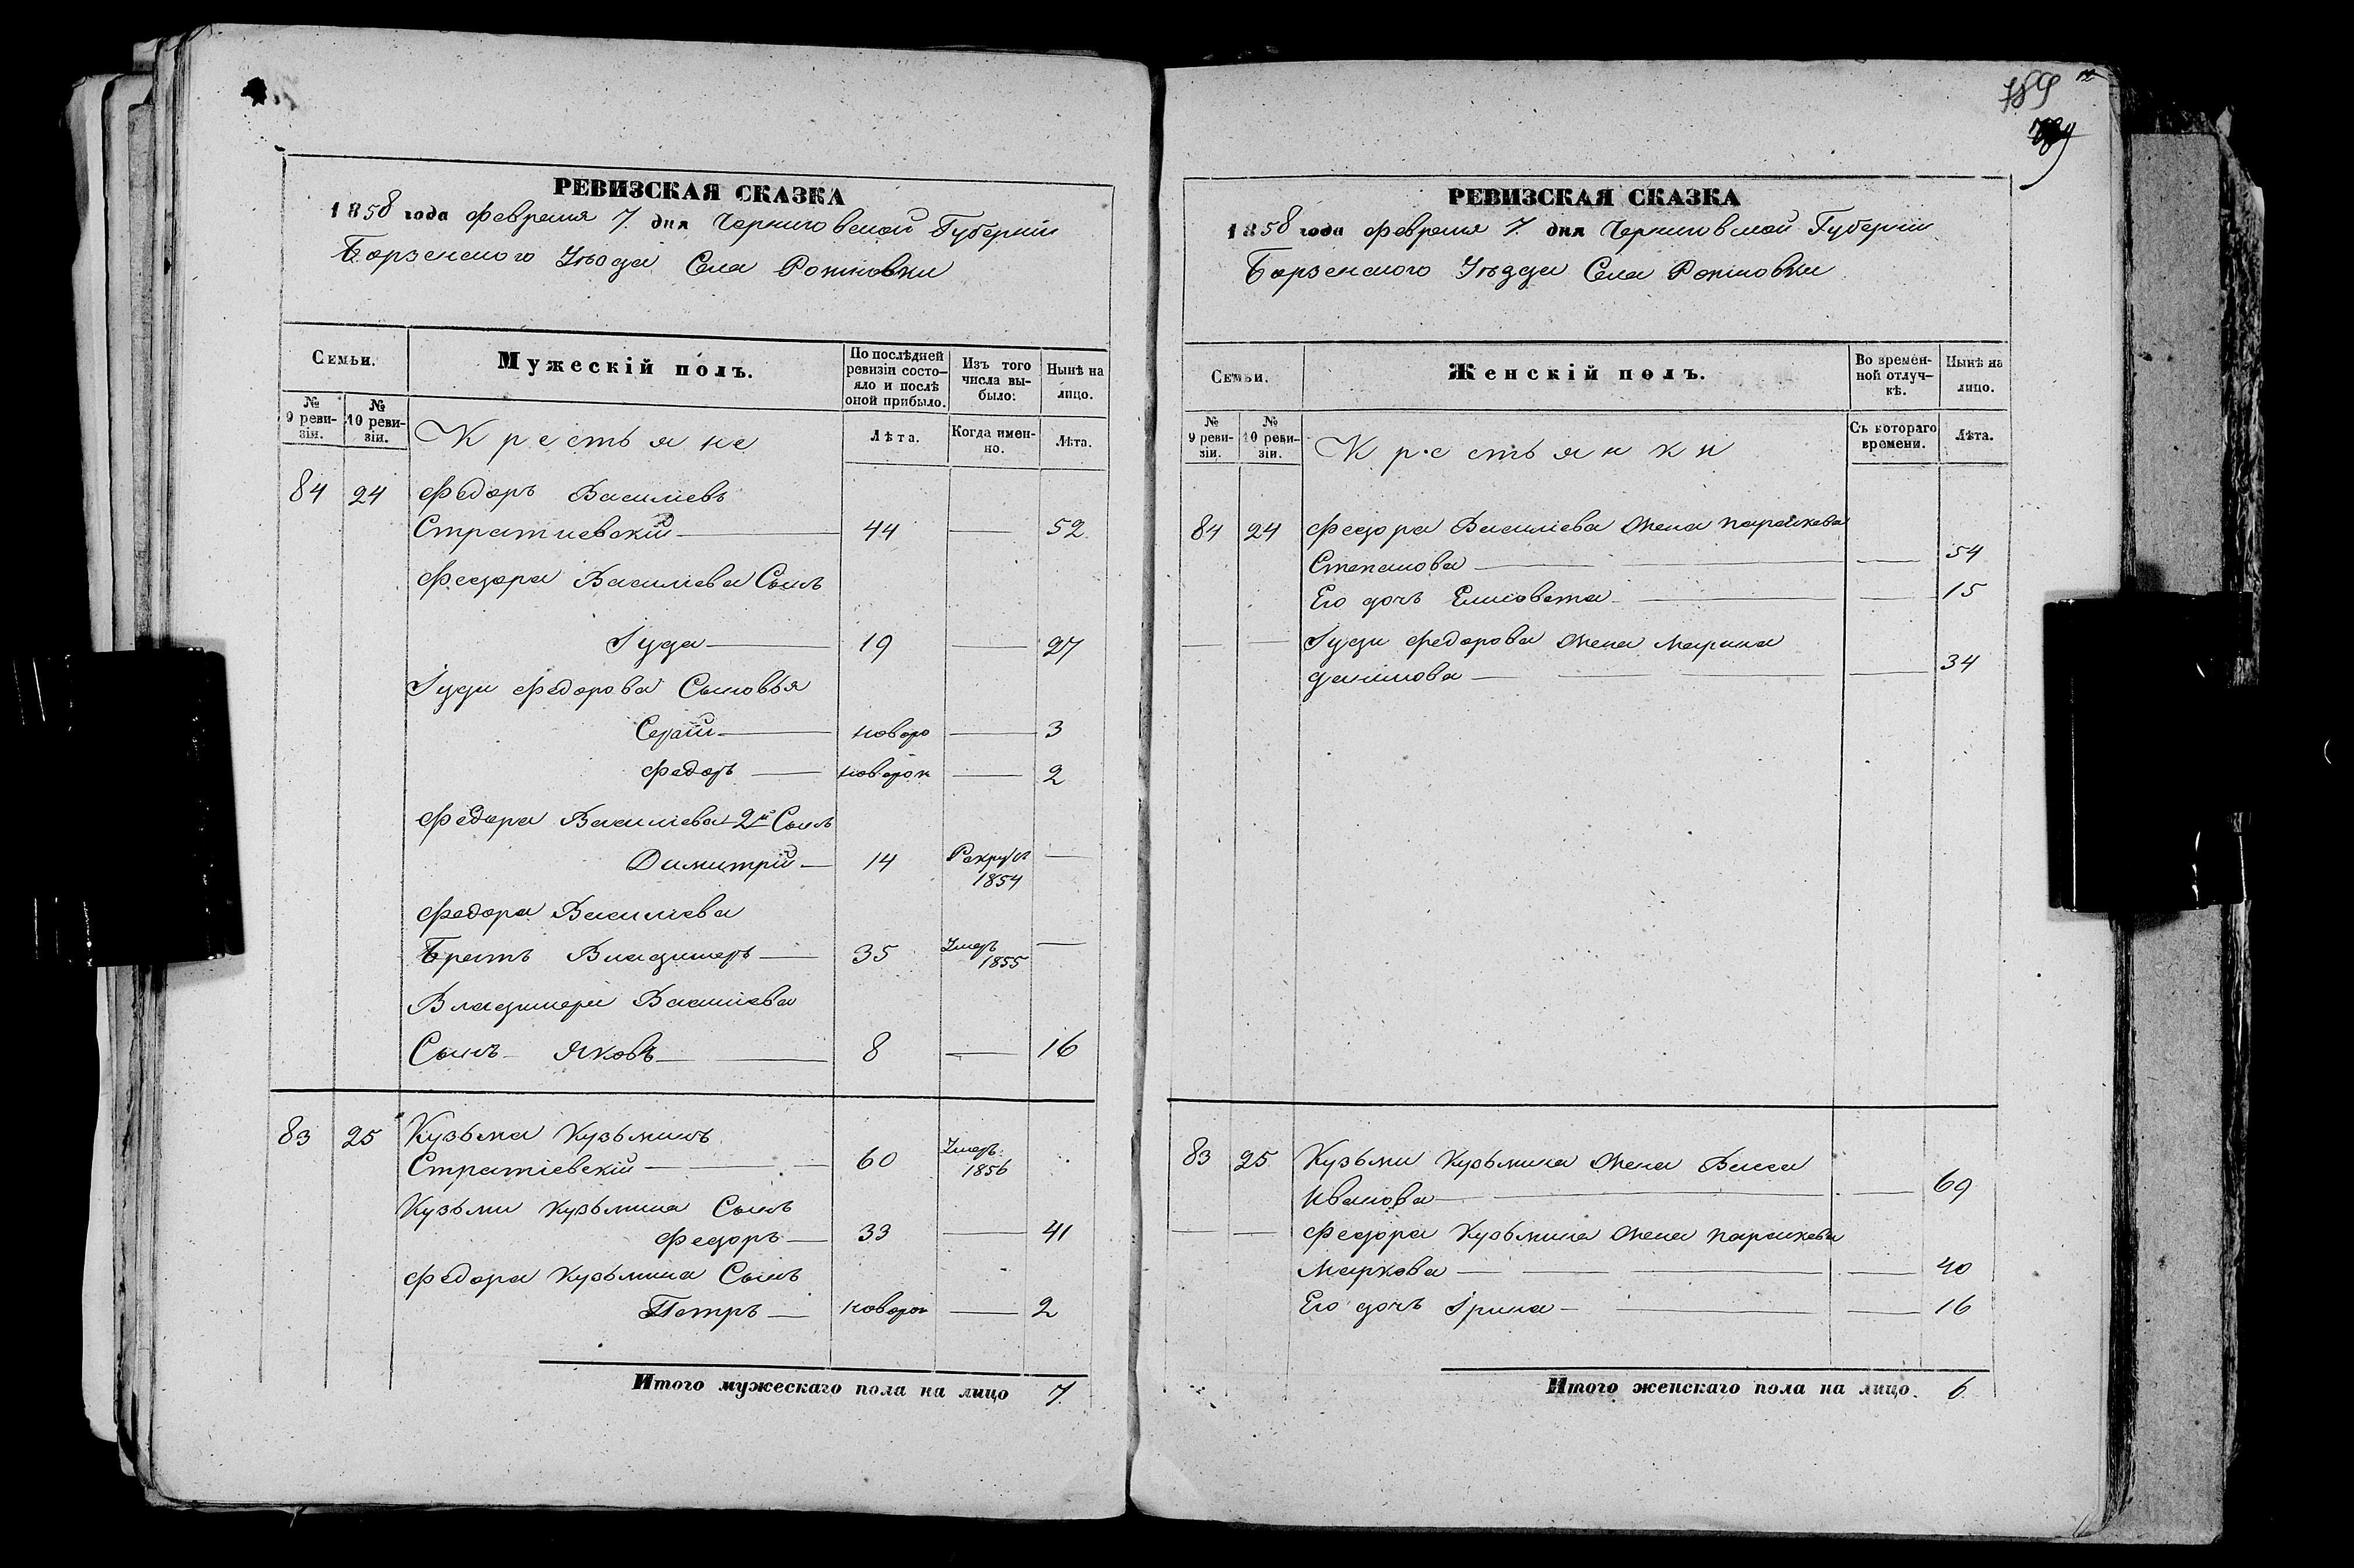 РЕВИЗСКАЯ СКАЗКА
1858 года Февраля 7. дня Черниговской Губерніи
Борзенского Уѣзда Села Рожновки
Семьи.
Мужескій полъ.
По послѣдней ревизіи состо-
яло и послѣ
оной прибыло.
Изъ того
числа вы-
было:
Нынѣ на
лицо.
№
9 реви-
зіи.
№
10 реви-
зіи.
Крестьяне
Лѣта.
Когда имен-
но.
Лѣта.
84 24 Федоръ Василіевъ
Стратиевскій 44 — 52
Федора Василіева Сынъ
Іуда — 19 — 27
Іуди Федорова Сыновья
— новоро — 3
Федоръ — новорож — 2
Федора Василіева 2й Сынъ
Димитрій — 14 Рекрут —
1854
Федора Василіева
Братъ Владимеръ — 35 Умеръ —
1855
Владимери Василіева
Сынъ Яковъ — 8 — 16
83 25 Кузьма Кузьминъ
Стратіевскій — 60 Умеръ
1856
Кузьми Кузьмина Сынъ
Федоръ — 33 — 41
Федора Кузьмина Сынъ
Петръ — новорож — 2
Итого мужескаго пола на лицо 7.
189
РЕВИЗСКАЯ СКАЗКА
1858 года Февраля 7. дня Черниговской Губерніи
Борзенского Уѣзда Села Рожновки
Семьи.
Женскій полъ.
Во времен-
ной отлуч-
кѣ.
Нынѣ на
лицо.
№
9 реви-
зіи.
№
10 реви-
зіи.
Крестьянки
Съ котораго
времени.
Лѣта.
84 24 Федора Василіева Жена Параскева
Степанова — — 54
Его дочь Елисовета — — 15
— — Іуди Федорова Жена Марина
Данилова — — 34
83 25 Кузьми Кузьмина Жена Васса
Иванова — — 69
— — Федора Кузьмина Жена Параскева
Маркова — — 40
Его дочь Ірина — — 16
Итого женскаго пола на лицо. 6